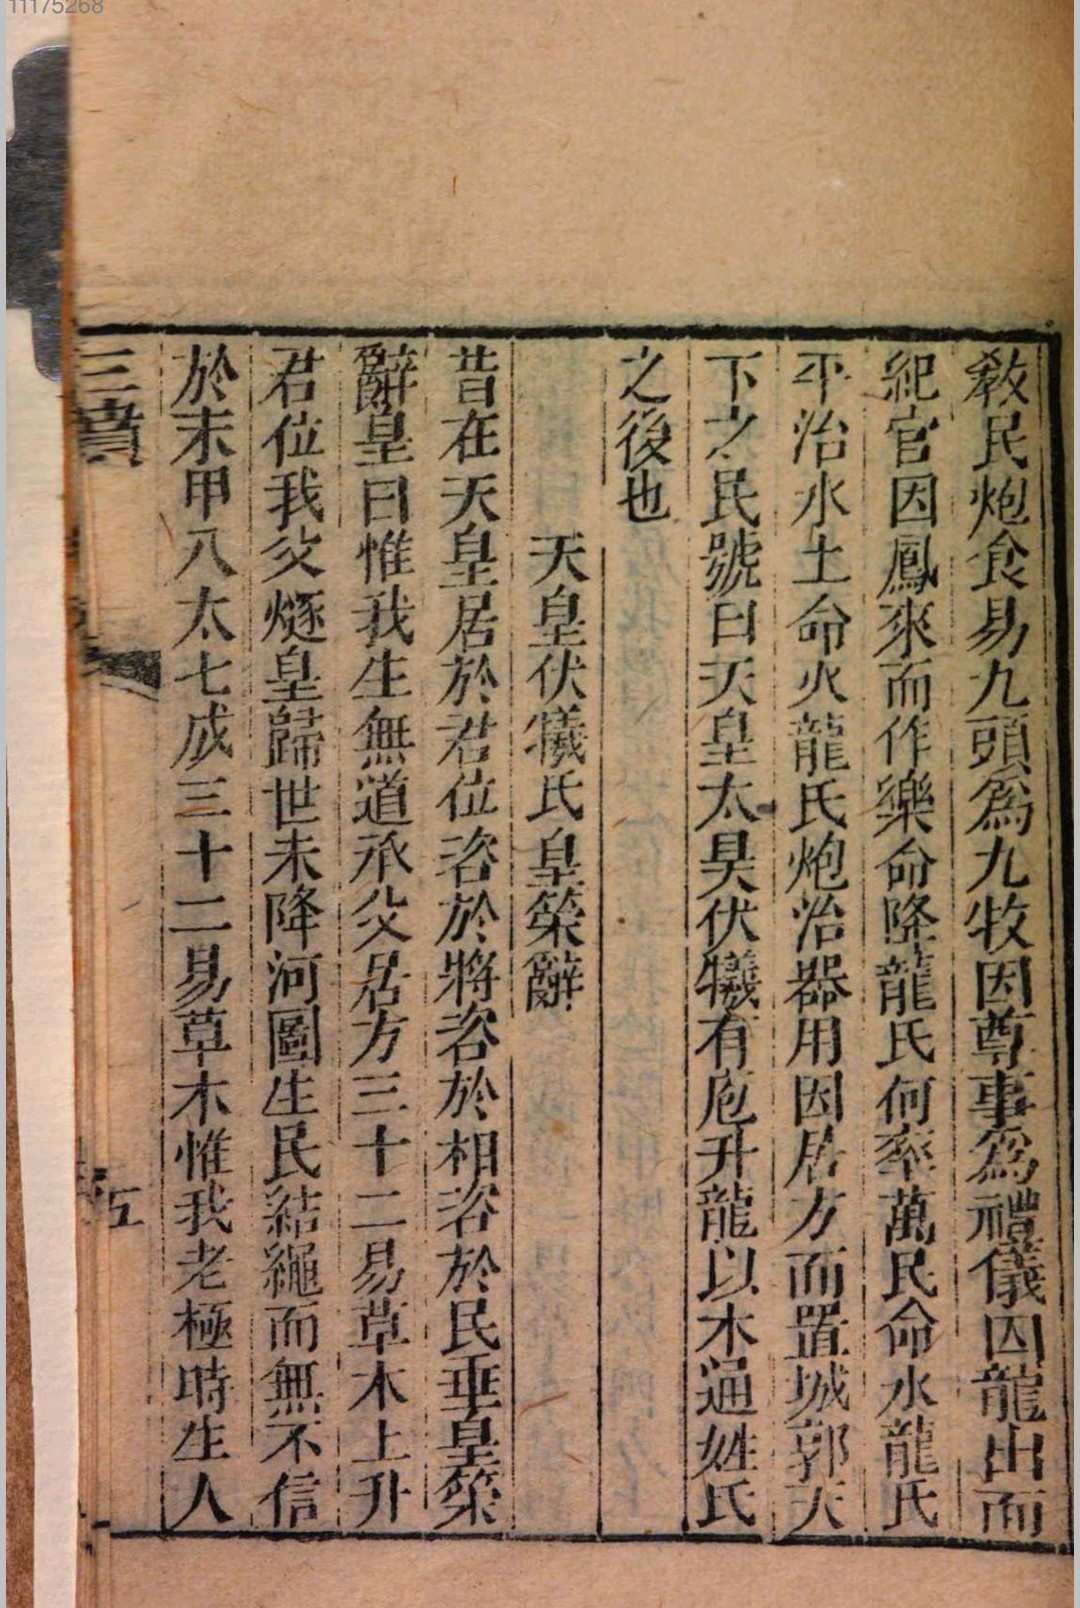 11175268
敎民炮食易九頭爲九牧因尊事爲禮儀因龍出而
紀官因鳳來而作樂命降龍氏何率萬民命水龍氏
平治水土命火龍氏炮治器用因居方而置城郭天
下之民號曰天皇太昊伏犧有庖升龍以木通姓氏
之後也
天皇伏犧氏皇策辭
昔在天皇居於君位咨於將咨於相咨於民垂皇策
辭皇曰惟我生無道承父居方三十二易草木上升
君位我父燧皇歸世未降河圖生民結繩而無不信
於末甲八太七成三十二易草木惟我老極時生人
三墳
五